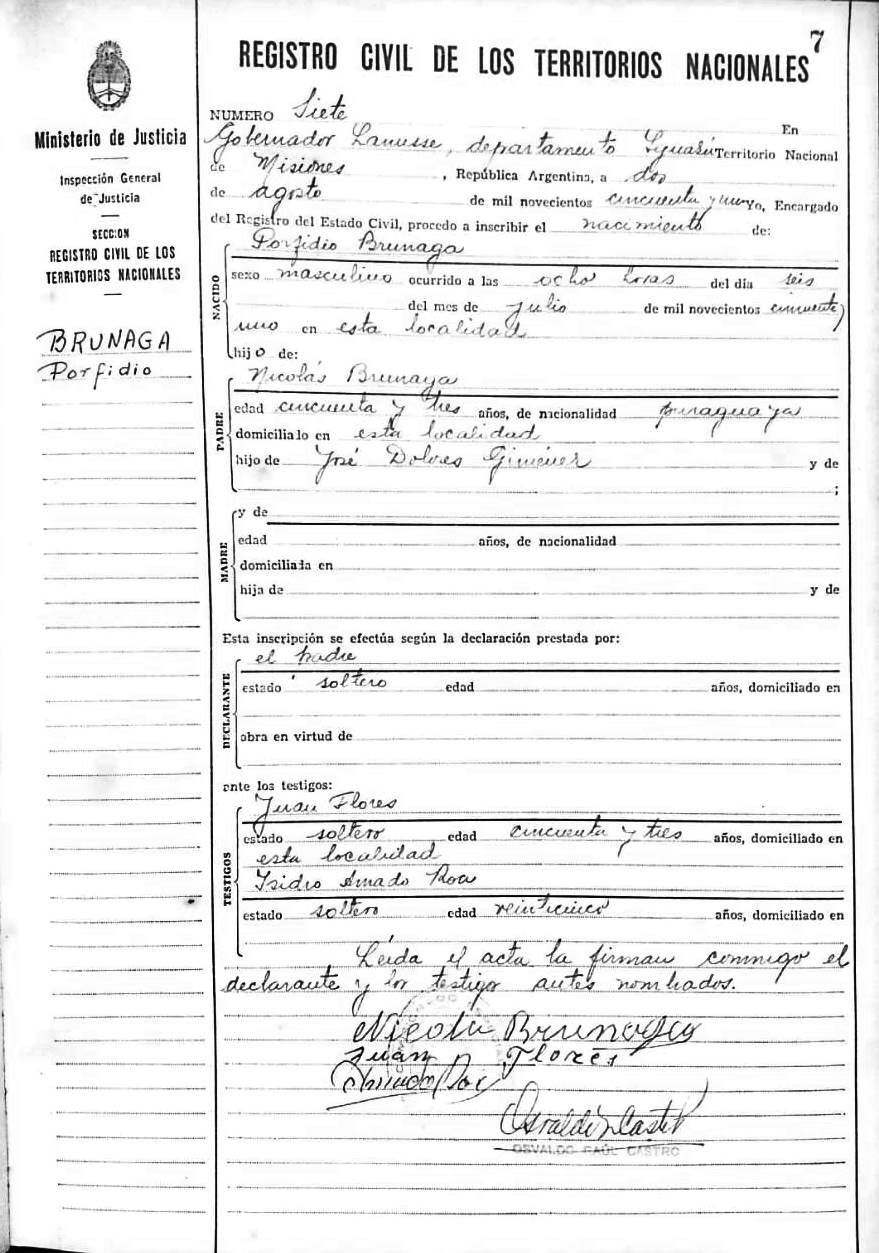 7
REGISTRO CIVIL DE LOS TERRITORIOS NACIONALES
Ministerio de Justicia
Inspección General
de Justicia
SECCION
REGISTRO CIVIL DE LOS
TERRITORIOS NACIONALES
BRUNAGA
Porfidio
NUMERO Siete En
Gobernador Lanusse, departamento Iguasú Territorio Nacional
de Misiones, República Argentina, a dos
de agosto de mil novecientos cincuenta y uno Yo, Encargado
del Registro del Estado Civil, procedo a inscribir el nacimiento de:
NACIDO
Porfidio Brunaga
sexo masculino ocurrido a las ocho horas del día seis
del mes de julio de mil novecientos cincuenta y
uno en esta localidad
hijo de:
PADRE
Nicolás Brunaga
edad cincuenta y tres años, de nacionalidad paraguaya
domiciliado en esta localidad
hijo de José Dolores Giménez y de
;
MADRE
y de
edad años, de nacionalidad
domiciliada en
hija de y de
Esta inscripción se efectúa según la declaración prestada por:
DECLARANTE
el padre
estado soltero edad años, domiciliado en
obra en virtud de
ante los testigos:
TESTIGOS
Juan Flores
estado soltero edad cincuenta y tres años, domiciliado en
esta localidad
Isidro Amado Roa
estado soltero edad veinticinco años, domiciliado en
Leida el acta la firman conmigo el
declarante y los testigo antes nombrados.
Nicola Brunaga
Juan Flores
Amado Roa
Osvaldo R Castro
OSVALDO RAÚL CASTRO